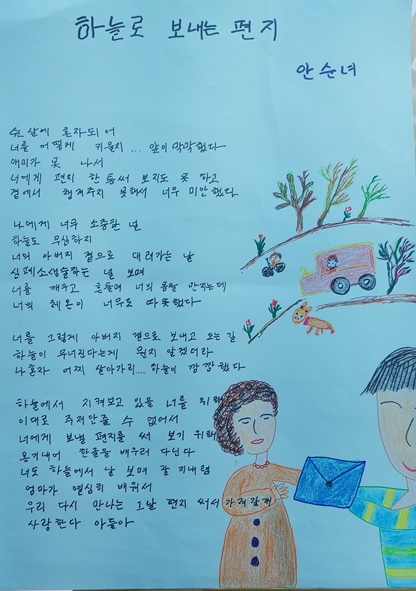 하늘로 보내는 편지
안순녀
쉰 살에 혼자되어
너를 어떻게 키울지 ... 앞이 막막했다
애미가 못 나서
너에게 편지 한 통 써 보지도 못 하고
곁에서 챙겨주지 못해서 너무 미안했다
나에게 너무 소중한 널
하늘도 무심하지
너의 아버지 곁으로 데려가는 날
심폐소생술하는 널 보며
너를 깨우고 흔들며 너의 몸을 만지는데
너의 체온이 너무도 따뜻했다
너를 그렇게 아버지 곁으로 보내고 오는 길
하늘이 무너진다는게 뭔지 알겠더라
나 혼자 어찌 살아가리... 하늘이 깜깜했다
하늘에서 지켜보고 있을 너를 위해
이대로 주저앉을 수 없어서
너에게 보낼 편지를 써 보기 위해
용기내어 한글을 배우러 다닌다
너도 하늘에서 날 보며 잘 지내렴
엄마가 열심히 배워서
우리 다시 만나는 그날 편지 써서 가져갈게
사랑한다 아들아